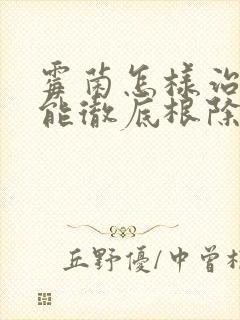 霉菌怎樣治
能徹底根除
丘野優/中曾